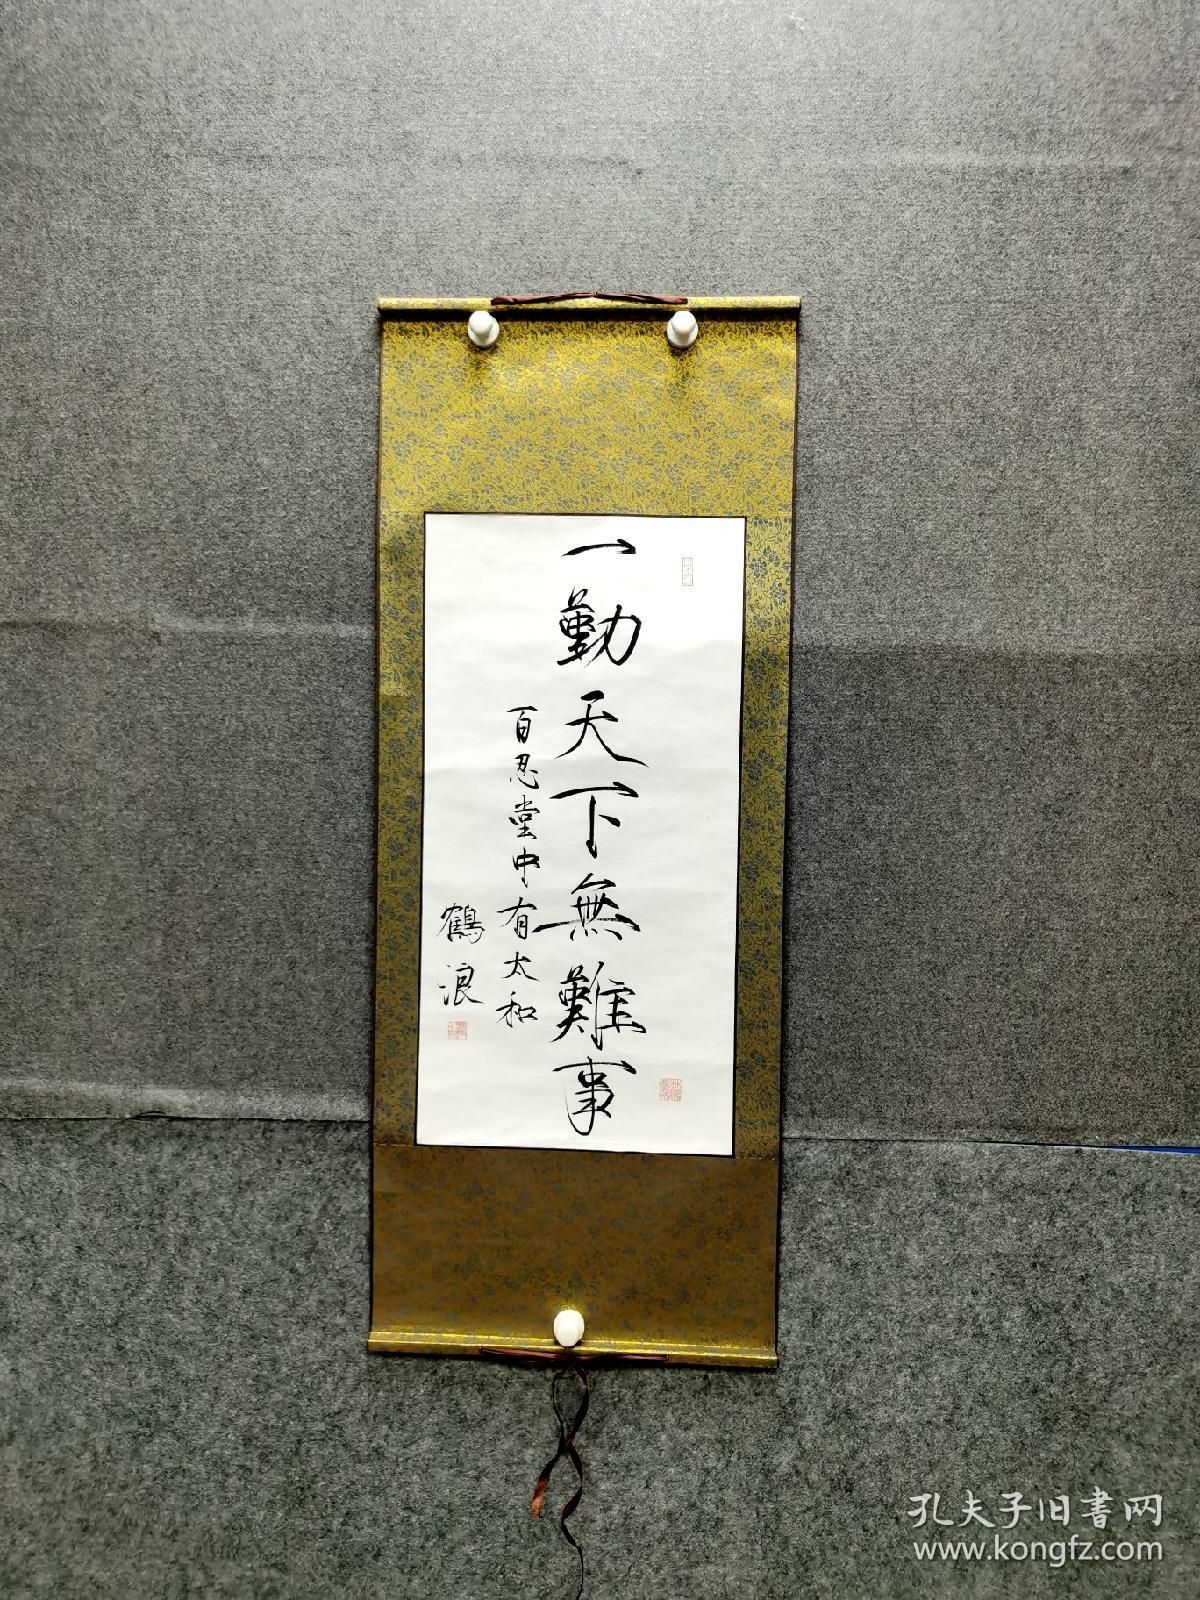 一勤天下無難事
百忍堂中有太和
鶴浪
孔夫子旧書网
www.kongfz.com